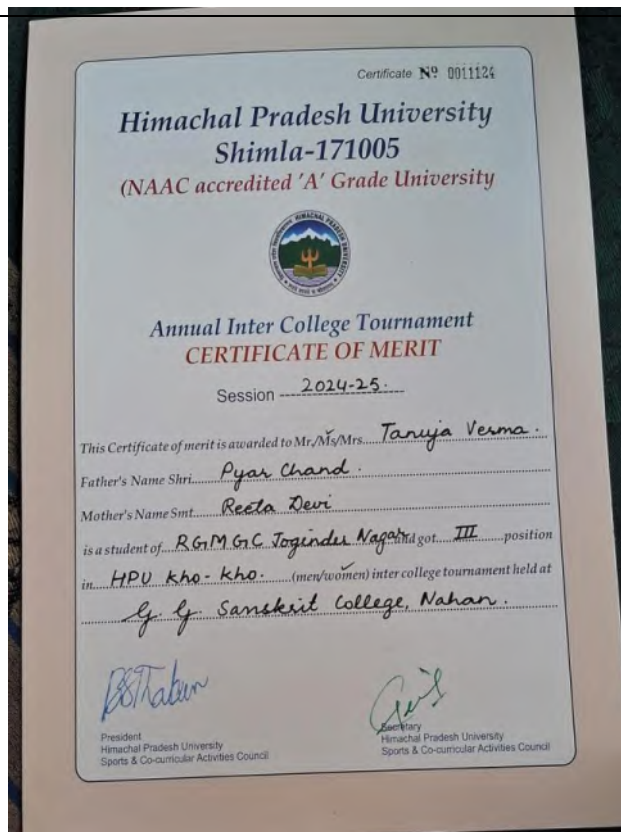 Certificate Nº 0011124
Himachal Pradesh University
Shimla-171005
(NAAC accredited 'A' Grade University
HIMACHAL PRADESH UNIVERSITY
Annual Inter College Tournament
CERTIFICATE OF MERIT
Session 2024-25.
This Certificate of merit is awarded to Mr./Ms/Mrs. Tanuja Verma.
Father's Name Shri. Pyar Chand.
Mother's Name Smt. Reeta Devi
is a student of RGMGC Joginder Nagar and got III position
in HPU Kho-kho. (men/women) inter college tournament held at
G. G. Sanskrit College, Nahan.
President
Himachal Pradesh University
Sports & Co-curricular Activities Council
Secretary
Himachal Pradesh University
Sports & Co-curricular Activities Council